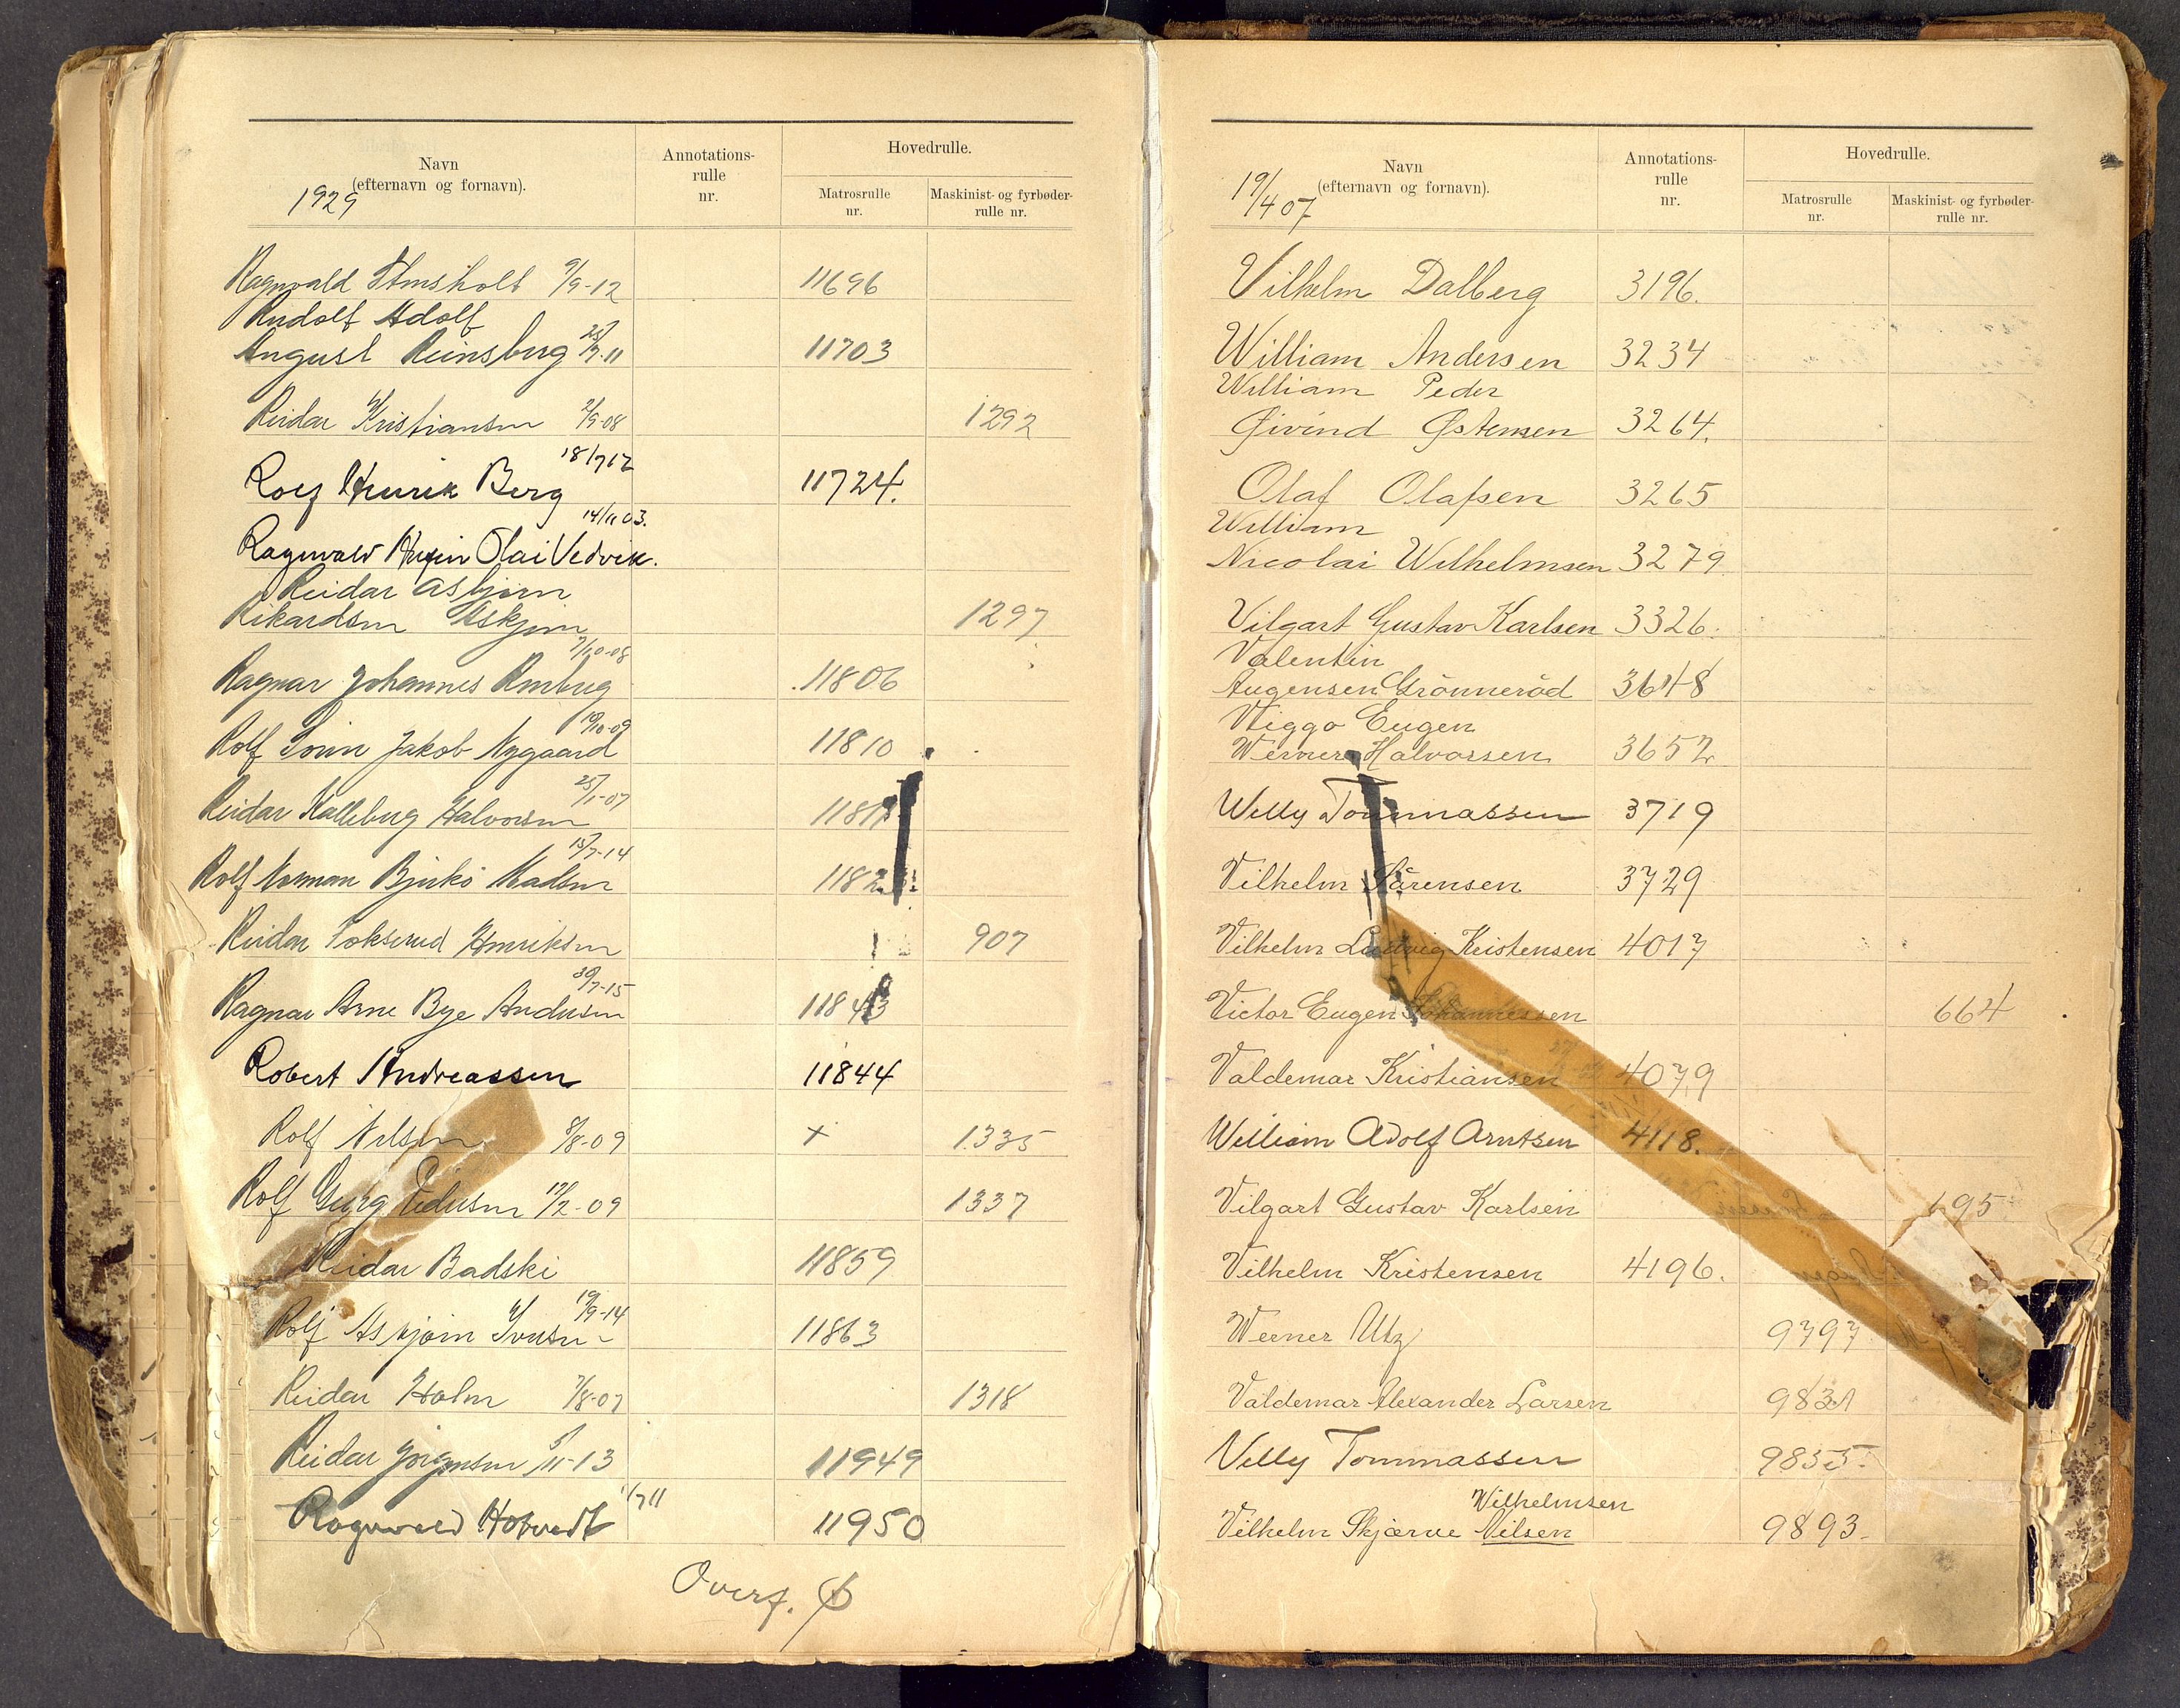 Navn
(efternavn og fornavn).
1929
Annotations-
rulle
nr.
Hovedrulle.
Matrosrulle
nr.
Maskinist- og fyrbøder-
rulle nr.
Ragnvald 9/9-12 11696
Rudolf Adolf
August Reinsberg 25/7.11 11703
Reidar Kristiansen 2/9-08 1292
18/7 12
Rolf Henrik Berg 11724.
14/11 03.
Ragnvald Olai Vedvik.
Reidar Asbjørn
Rikardsen Askjem 1297
7/10-08
Ragnar Johannes 11806
19/10-09
Rolf Jakob Nygaard 11810
25/1-07
Reidar Kalleberg Halvorsen
15/7-14
Rolf Norman Bjerkö Madsen
Reidar Henriksen 907
30/7-15
Ragnar Arne Bye Andersen 11843
Robert Andreassen 11844
Rolf Nilsen 8/8-09 + 1335
Rolf Georg Pedersen 17/2-09 1337
Reidar Badski 11859
19/9-14
Rolf Askjørn Iversen 11863
Reidar Holm 7/8-07 1318
Reidar Jörgensen 5/11-13 11949
1/7 11
Ragnvald Hotvedt 11950
Overf. φ
19/4 07
Navn
(efternavn og fornavn).
Annotations-
rulle
nr.
Hovedrulle.
Matrosrulle
nr.
Maskinist- og fyrbøder-
rulle nr.
Vilhelm Dalberg 3196.
William Andersen 3234
William Peder
Øivind Østensen 3264.
Olaf Olafsen 3265
William
Nicolai Wilhelmsen 3279
Vilgart Gustav Karlsen 3326.
Valentin
Augensen Grönneröd 3648
Viggo Eugen
Werner Halvorsen 3652
Willy Tommassen 3719
Vilhelm Sörensen 3729
Vilhelm Ludvig Kristensen 4017
Victor Eugen Johannessen 664
Valdemar Kristiansen 4079
William Adolf Arntsen 4118.
Vilgart Gustav Karlsen 695
Vilhelm Kristensen 4196.
Werner Utz 9797
Valdemar Alexander Larsen 9831
Villy Tommassen 9855.
Wilhelmsen
Vilhelm Skjærve Nilsen 9893.